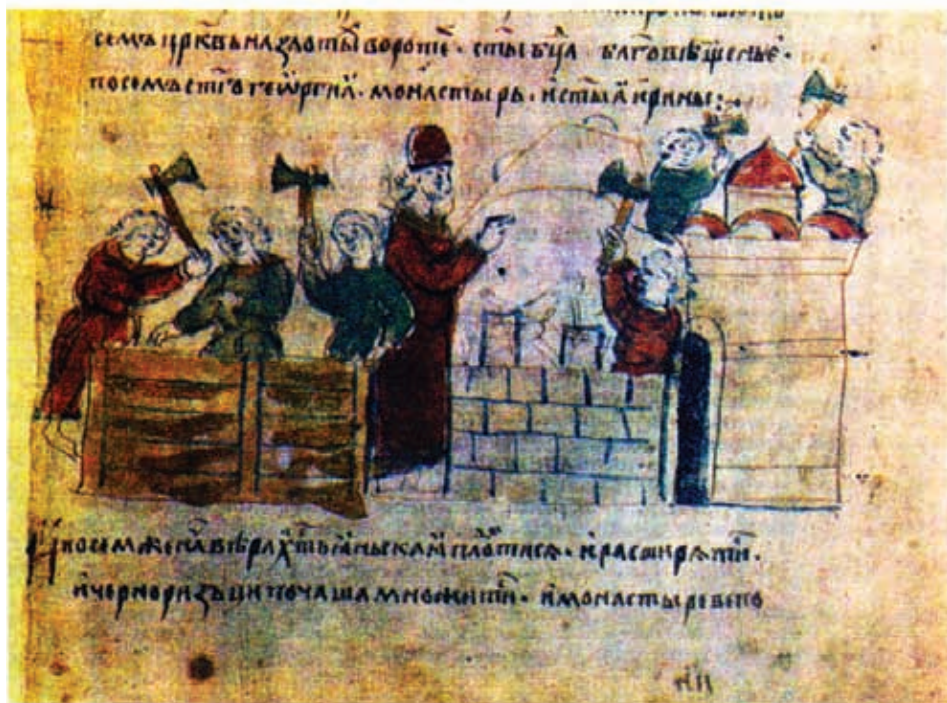 семъ црквь на златы воротѣ · сты бца блговѣщенье ·
посемъ стго геѡргиꙗ · монастырь · и стыꙗ ирины :·
И посем же нача вѣра хтьꙗньскаꙗ плотисѧ · и расширѧти ·
и черноризьци почаша множити · и монастыреве по